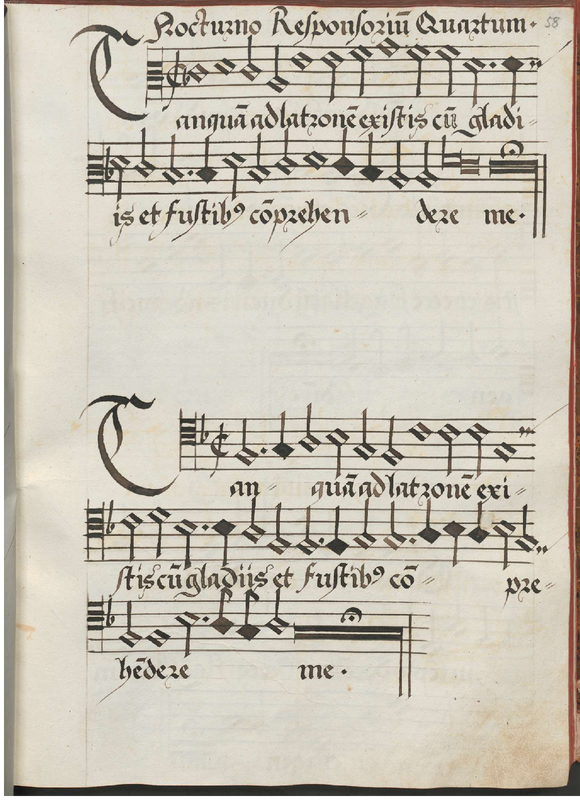 Nocturno Responsoriū Quartum.
58
Tanquā ad latronē existis cū gladi-
is et fustibꝰ cōprehen- dere me.
Tan- quā ad latronē exi-
stis cū gladiis et fustibꝰ cō- pre-
hēdere me.